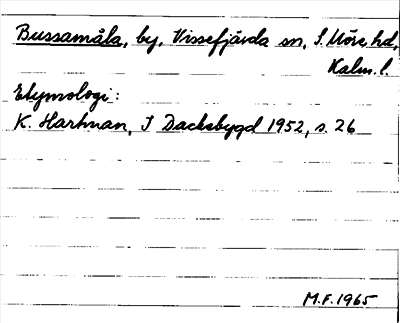 Bussamåla, by, Vissefjärda sn, S. Möre hd,
Kalm. l.
Etymologi:
K. Hartman, I Dackebygd 1952, s. 26
M.F. 1965